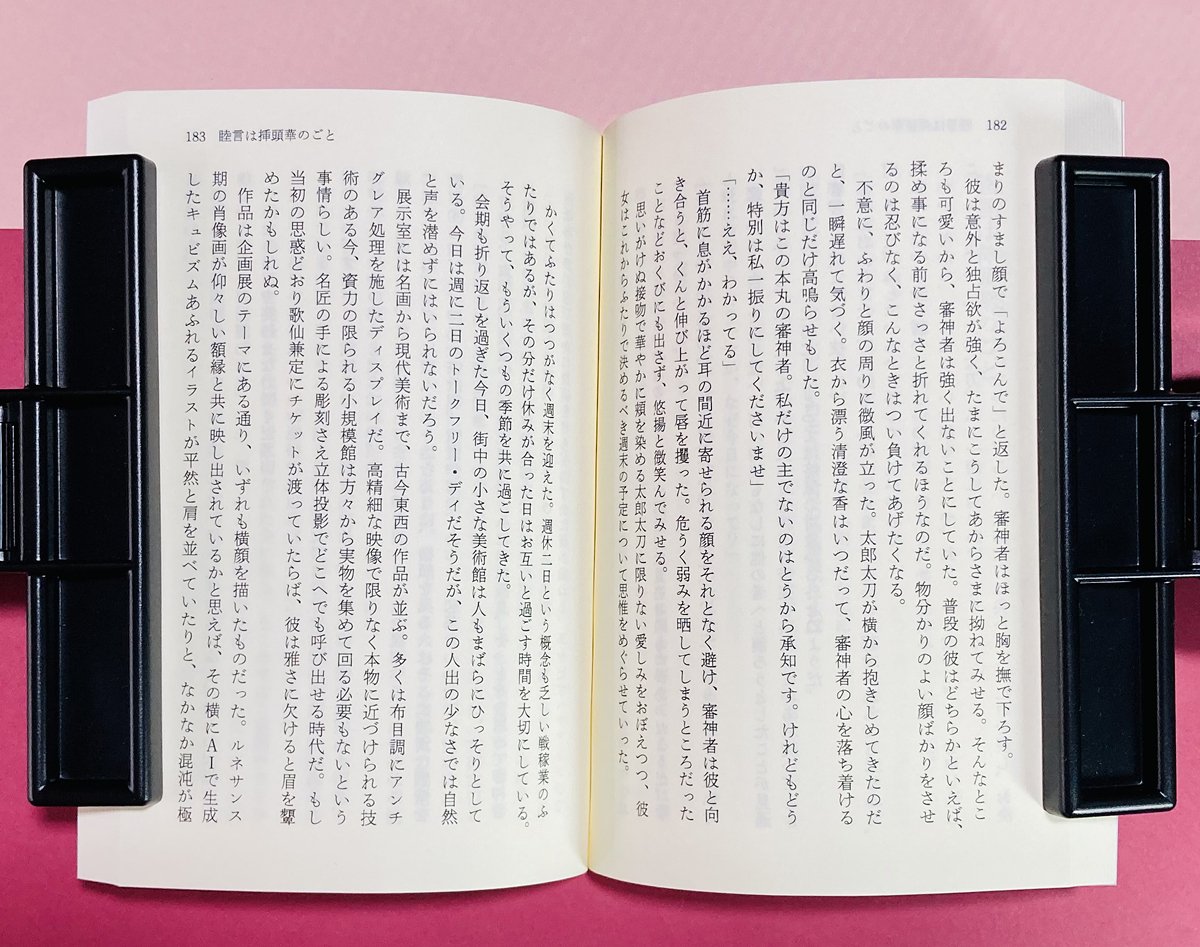 182
まりのすまし顔で「よろこんで」と返した。審神者はほっと胸を撫で下ろす。
彼は意外と独占欲が強く、たまにこうしてあからさまに拗ねてみせる。そんなとこ
ろも可愛いから、審神者は強く出ないことにしていた。普段の彼はどちらかといえば、
揉め事になる前にさっさと折れてくれるほうなのだ。物分かりのよい顔ばかりをさせ
るのは忍びなく、こんなときはつい負けてあげたくなる。
不意に、ふわりと顔の周りに微風が立った。太郎太刀が横から抱きしめてきたのだ
と、一瞬遅れて気づく。衣から漂う清澄な香はいつだって、審神者の心を落ち着ける
のと同じだけ高鳴らせもした。
「貴方はこの本丸の審神者。私だけの主でないのはとうから承知です。けれどもどう
か、特別は私一振りにしてくださいませ」
「……ええ、わかってる」
首筋に息がかかるほど耳の間近に寄せられる顔をそれとなく避け、審神者は彼と向
き合うと、くんと伸び上がって唇を攫った。危うく弱みを晒してしまうところだった
ことなどおくびにも出さず、悠揚と微笑んでみせる。
思いがけぬ接吻で華やかに頬を染める太郎太刀に限りない愛しみをおぼえつつ、彼
女はこれからふたりで決めるべき週末の予定について思惟をめぐらせていった。
183 睦言は挿頭華のごと
かくてふたりはつつがなく週末を迎えた。週休二日という概念も乏しい戦稼業のふ
たりではあるが、その分だけ休みが合った日はお互いと過ごす時間を大切にしている。
そうやって、もういくつもの季節を共に過ごしてきた。
会期も折り返しを過ぎた今日、街中の小さな美術館は人もまばらにひっそりとして
いる。今日は週に二日のトークフリー・デイだそうだが、この人出の少なさでは自然
と声を潜めずにはいられないだろう。
展示室には名画から現代美術まで、古今東西の作品が並ぶ。多くは布目調にアンチ
グレア処理を施したディスプレイだ。高精細な映像で限りなく本物に近づけられる技
術のある今、資力の限られる小規模館は方々から実物を集めて回る必要もないという
事情らしい。名匠の手による彫刻さえ立体投影でどこへでも呼び出せる時代だ。もし
当初の思惑どおり歌仙兼定にチケットが渡っていたらば、彼は雅さに欠けると眉を顰
めたかもしれぬ。
作品は企画展のテーマにある通り、いずれも横顔を描いたものだった。ルネサンス
期の肖像画が仰々しい額縁と共に映し出されているかと思えば、その横にＡＩで生成
したキュビズムあふれるイラストが平然と肩を並べていたりと、なかなか混沌が極